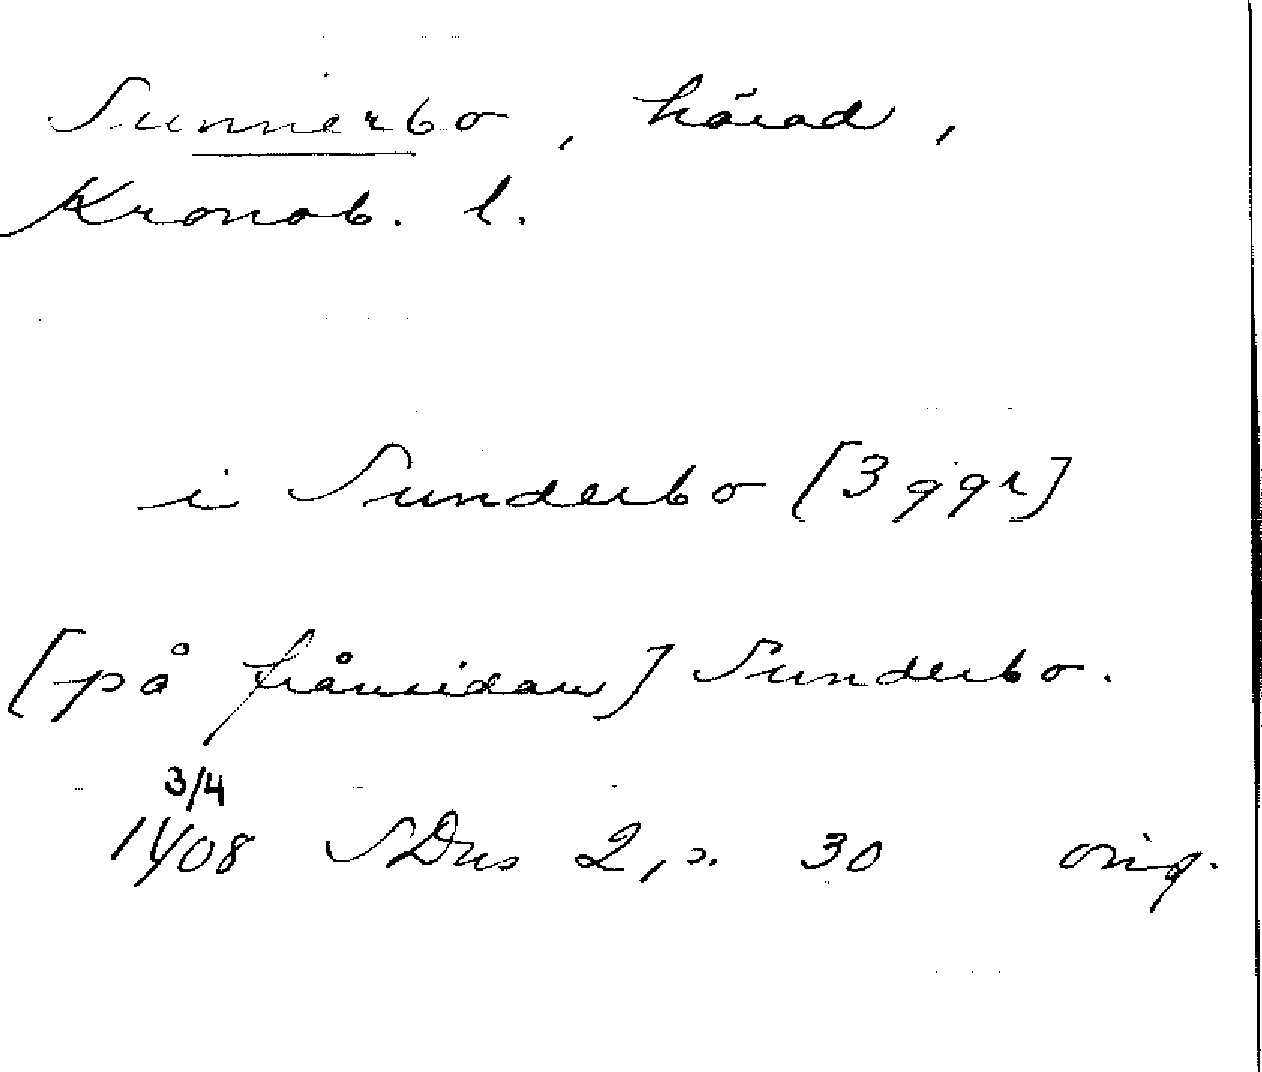 Sunnerbo, härad,
Kronob. l.
i Sunderbo [3 ggr]
[på frånsidan] Sunderbo.
3/4
1408 SDns 2, s. 30 orig.